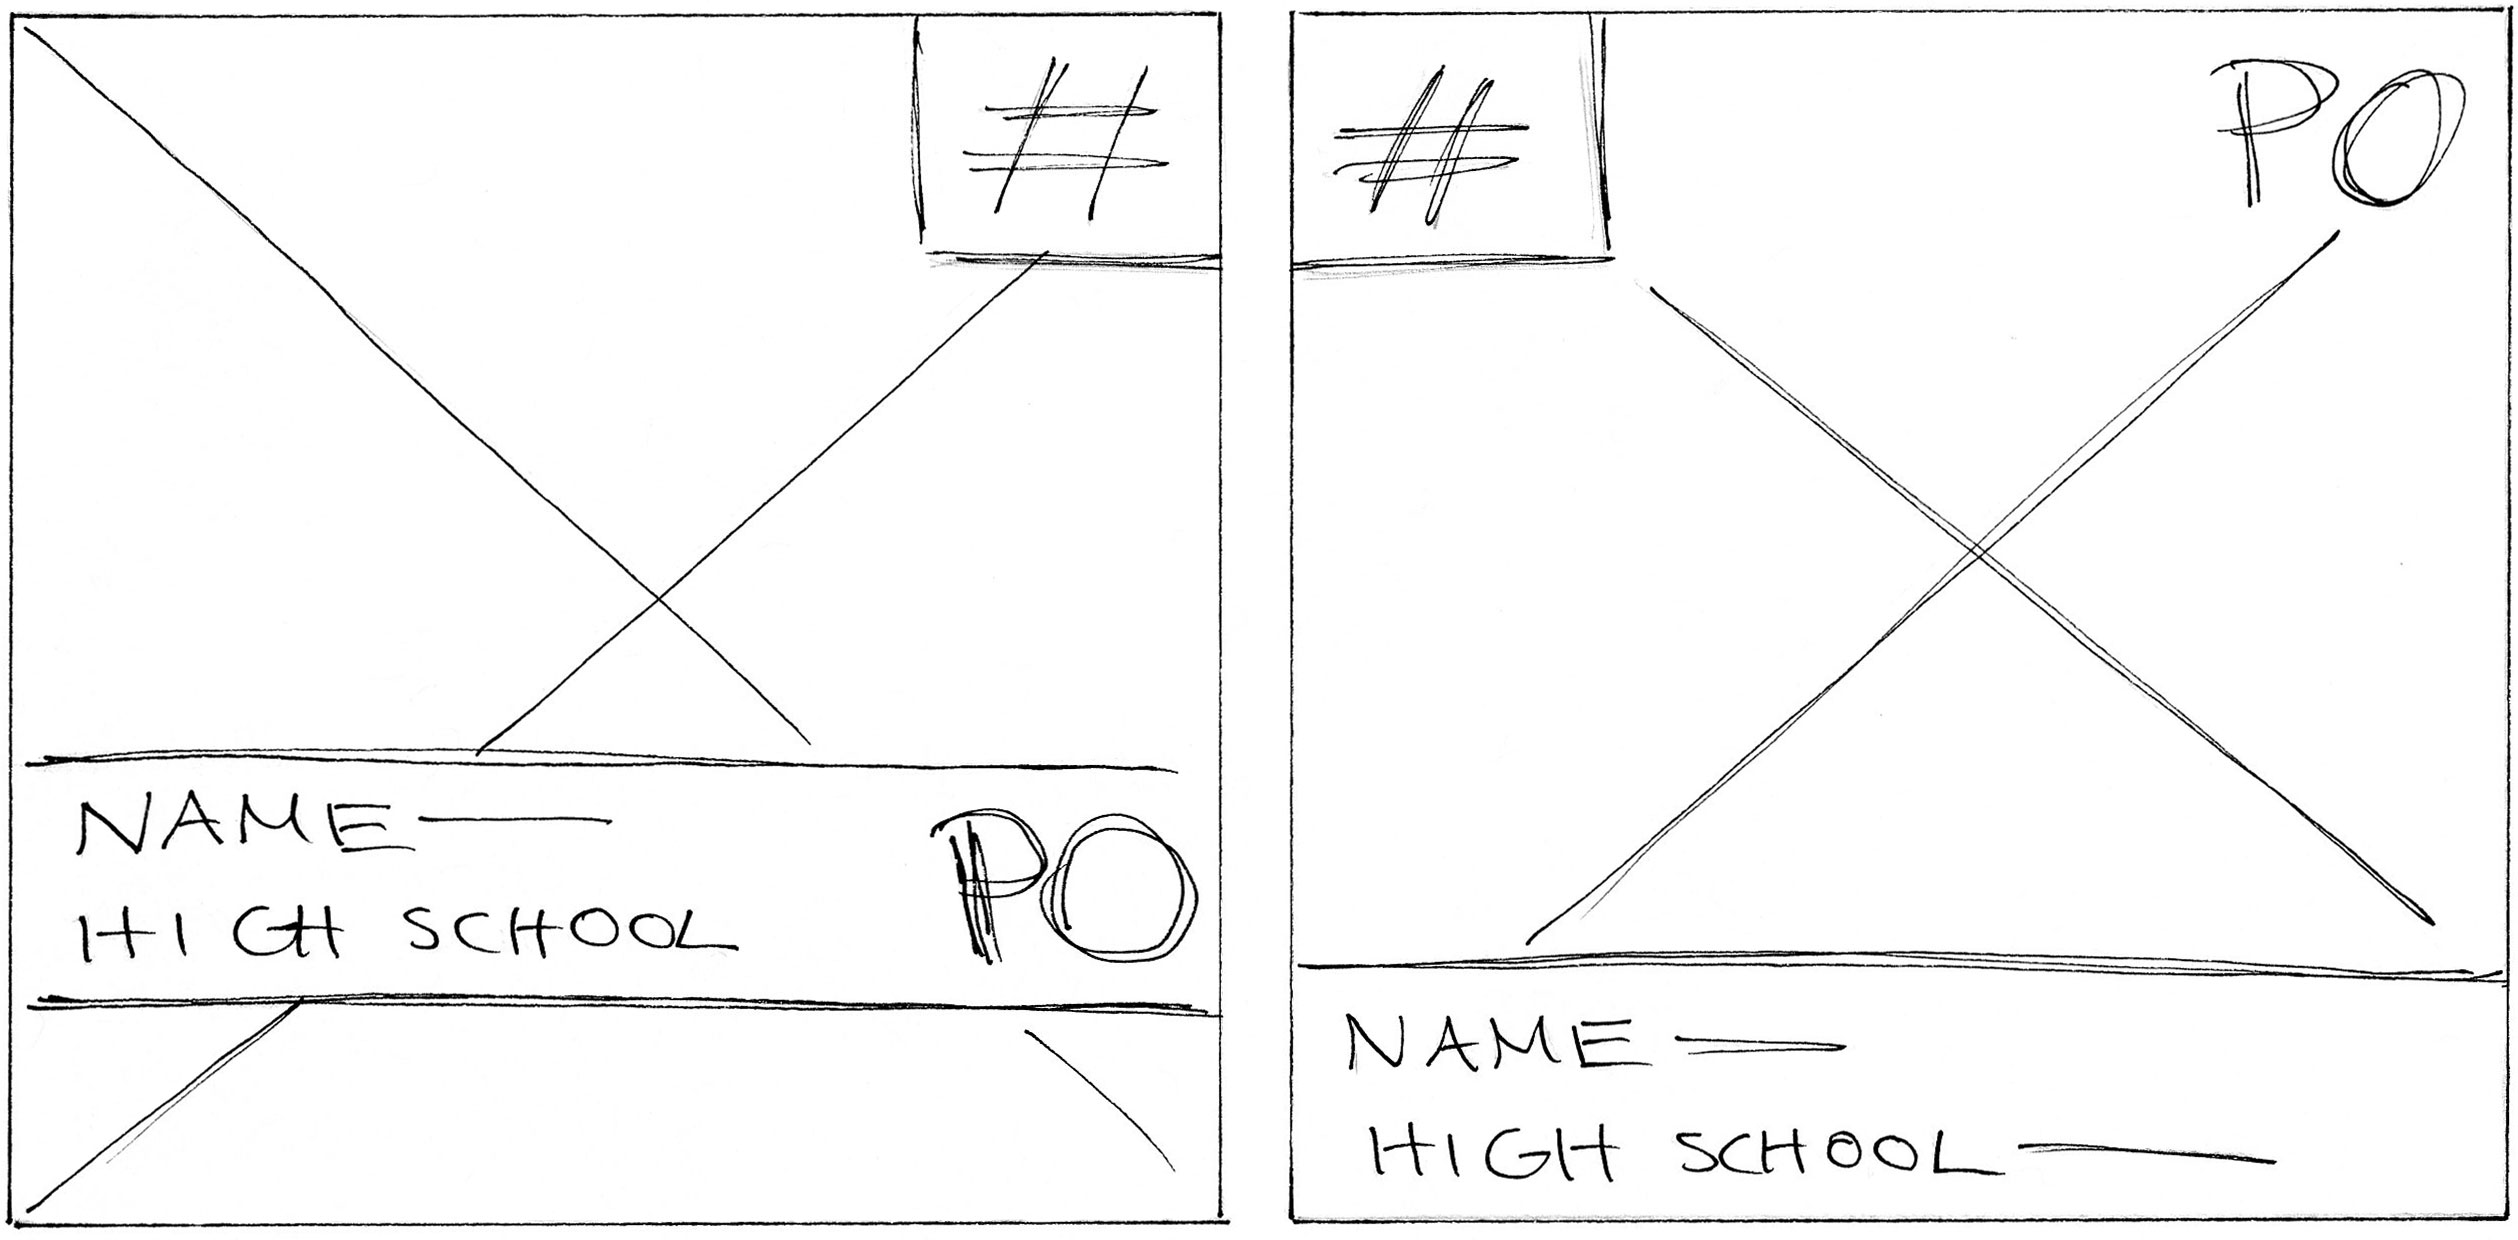 #
NAME
PO
HIGH SCHOOL
#
PO
NAME
HIGH SCHOOL